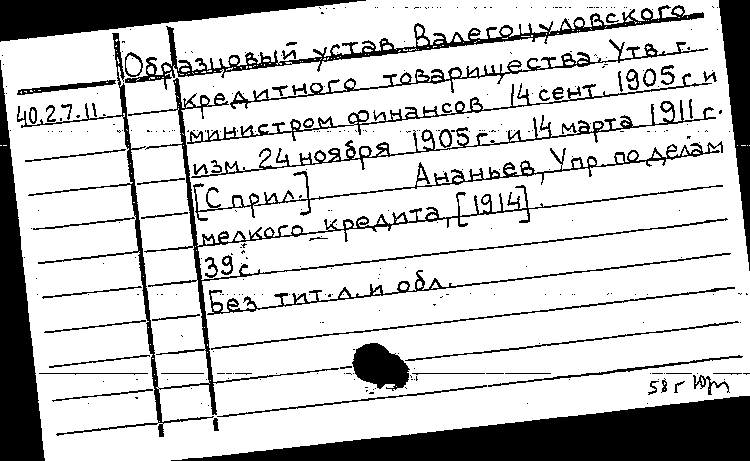 Образцовый устав Валегоцуловского
40.2.7.11. кредитного товарищества. Утв. г.
министром финансов 14 сент. 1905 г. и
изм. 24 ноября 1905 г. и 14 марта 1911 г.
[С прил.] Ананьев, Упр. по делам
мелкого кредита, [1914].
39 с.
Без тит. л. и обл.
58 г